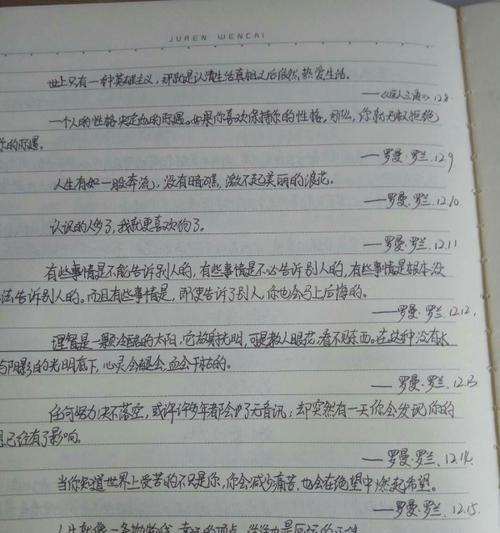 JUREN WENCAI
世上只有一种英雄主义，那就是认清生活真相之后依然热爱生活。
12.8
一个人的性格决定他的际遇。如果你喜欢保持你的性格，那么，你就无权拒绝
你的际遇。
—罗曼·罗兰.12.9
人生有如一股奔流，没有暗礁，激不起美丽的浪花。
—罗曼·罗兰.12.10
认识的人多了，我就更喜欢狗了。
—罗曼·罗兰.12.11
有些事情是不能告诉别人的，有些事情是不必告诉别人的，有些事情是根本没
法告诉别人的。而且有些事情是，即使告诉了别人，你也会马上后悔的。
—罗曼·罗兰.12.12.
理智是一颗冷酷的太阳，它放射光明，可是教人眼花，看不见东西。在这种没有水
与阴影的光明底下，心灵会褪色，血会干枯的。
—罗曼·罗兰.12.13
任何努力决不落空，或许许多年都会了无音讯；却突然有一天你会发现你的
思已经有了影响。
—罗曼·罗兰.12.14.
当你知道世界上受苦的不只是你，你会减少痛苦，也会在绝望中燃起希望。
—罗曼·罗兰.12.15.